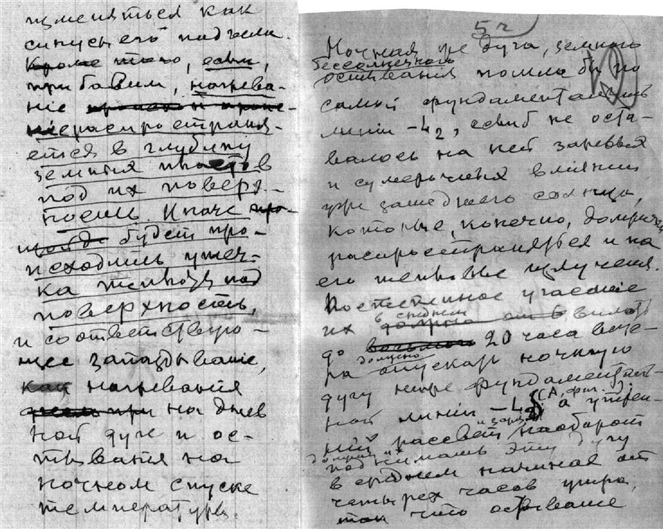 измѣняться как
синусы его подъема.
Кромѣ того, если,
прибавим, нагрева-
ніе
распространя-
ется в глубину
земных пластов
под их поверх-
ность. Иначе
будет про-
исходить утеч-
ка теплоты под
поверхность,
и соответствую-
щее запаздываніе,
как нагреванія
на днев
ной дуге и ос-
тыванія на
ночном спуске
температуры.
5ч
Ночная же дуга, земного
безсолнечного
остыванія пошла бы по
самой фундаментальной
линіи -4₂, если б не оста-
валось на ней заревыя
и сумеречныя вліянія
уже зашедшего солнца,
которые, конечно, должны
распространяться и на
его тепловые излученія.
Постепенное угасаніе
в среднем
их вплоть
до 20 часа вече-
должно
ра опускать ночную
дугу ниже фундаменталь-
ной линіи -4 (А, фиг. ), а утрен-
ній разсвет наоборот
поднимать эту дугу
в среднем начиная от
четырех часов утра,
так что остываніе